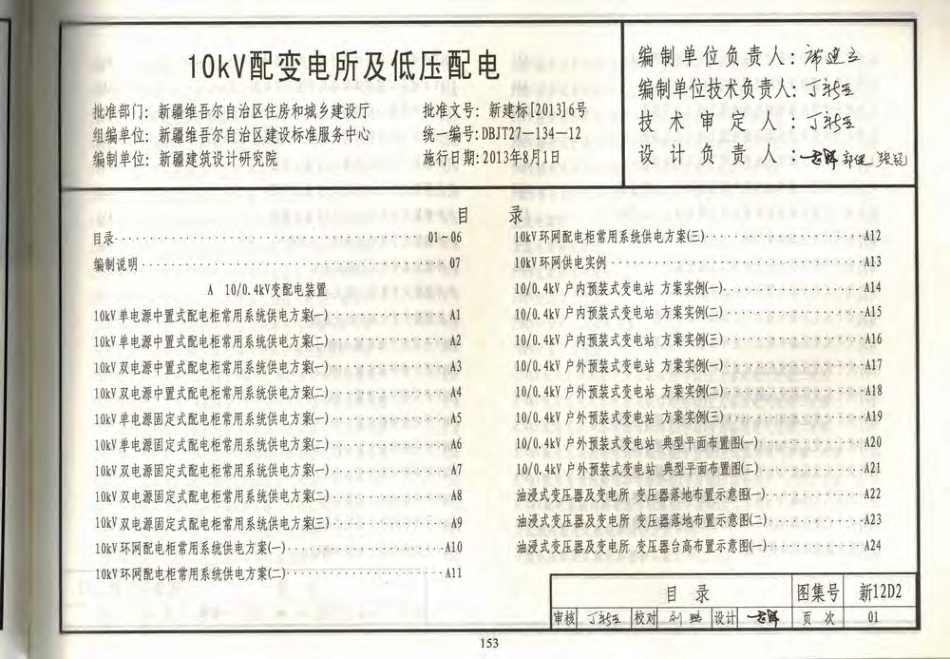 10kV配变电所及低压配电
批准部门: 新疆维吾尔自治区住房和城乡建设厅
组编单位: 新疆维吾尔自治区建设标准服务中心
编制单位: 新疆建筑设计研究院
批准文号: 新建标[2013]6号
统一编号:DBJT27-134-12
施行日期:2013年8月1日
编制单位负责人:
编制单位技术负责人:
技术审定人:
设计负责人:
目 录
目录 01-06
编制说明 07
A 10/0.4kV变配电装置
10kV单电源中置式配电柜常用系统供电方案(一) A1
10kV单电源中置式配电柜常用系统供电方案(二) A2
10kV双电源中置式配电柜常用系统供电方案(一) A3
10kV双电源中置式配电柜常用系统供电方案(二) A4
10kV单电源固定式配电柜常用系统供电方案(一) A5
10kV单电源固定式配电柜常用系统供电方案(二) A6
10kV双电源固定式配电柜常用系统供电方案(一) A7
10kV双电源固定式配电柜常用系统供电方案(二) A8
10kV双电源固定式配电柜常用系统供电方案(三) A9
10kV环网配电柜常用系统供电方案(一) A10
10kV环网配电柜常用系统供电方案(二) A11
10kV环网配电柜常用系统供电方案(三) A12
10kV环网供电实例 A13
10/0.4kV户内预装式变电站 方案实例(一) A14
10/0.4kV户内预装式变电站 方案实例(二) A15
10/0.4kV户内预装式变电站 方案实例(三) A16
10/0.4kV户外预装式变电站 方案实例(一) A17
10/0.4kV户外预装式变电站 方案实例(二) A18
10/0.4kV户外预装式变电站 方案实例(三) A19
10/0.4kV户外预装式变电站 典型平面布置图(一) A20
10/0.4kV户外预装式变电站 典型平面布置图(二) A21
油浸式变压器及变电所 变压器落地布置示意图(一) A22
油浸式变压器及变电所 变压器落地布置示意图(二) A23
油浸式变压器及变电所 变压器台高布置示意图(一) A24
目 录 图集号 新12D2
审核 校对 设计 页次 01
153